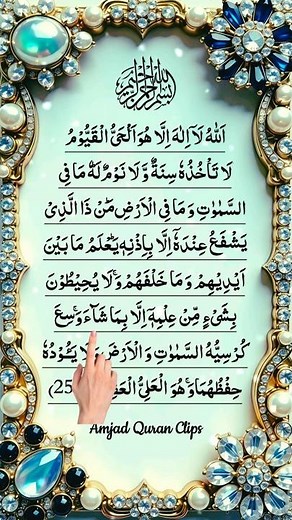 بسم الله الرحمن الرحيم
اَللّٰهُ لَآ اِلٰهَ اِلَّا هُوَ اَلْحَىُّ الْقَيُّوْمُ
لَا تَاْخُذُهٗ سِنَةٌ وَّلَا نَوْمٌ لَهٗ مَا فِى
السَّمٰوٰتِ وَمَا فِى الْاَرْضِ مَنْ ذَا الَّذِىْ
يَشْفَعُ عِنْدَهٗٓ اِلَّا بِاِذْنِهٖ يَعْلَمُ مَا بَيْنَ
اَيْدِيْهِمْ وَمَا خَلْفَهُمْ وَلَا يُحِيْطُوْنَ
بِشَىْءٍ مِّنْ عِلْمِهٖٓ اِلَّا بِمَا شَآءَ وَسِعَ
كُرْسِيُّهُ السَّمٰوٰتِ وَالْاَرْضَ وَلَا يَـُٔوْدُهٗ
حِفْظُهُمَا وَهُوَ الْعَلِىُّ
Amjad Quran Clips